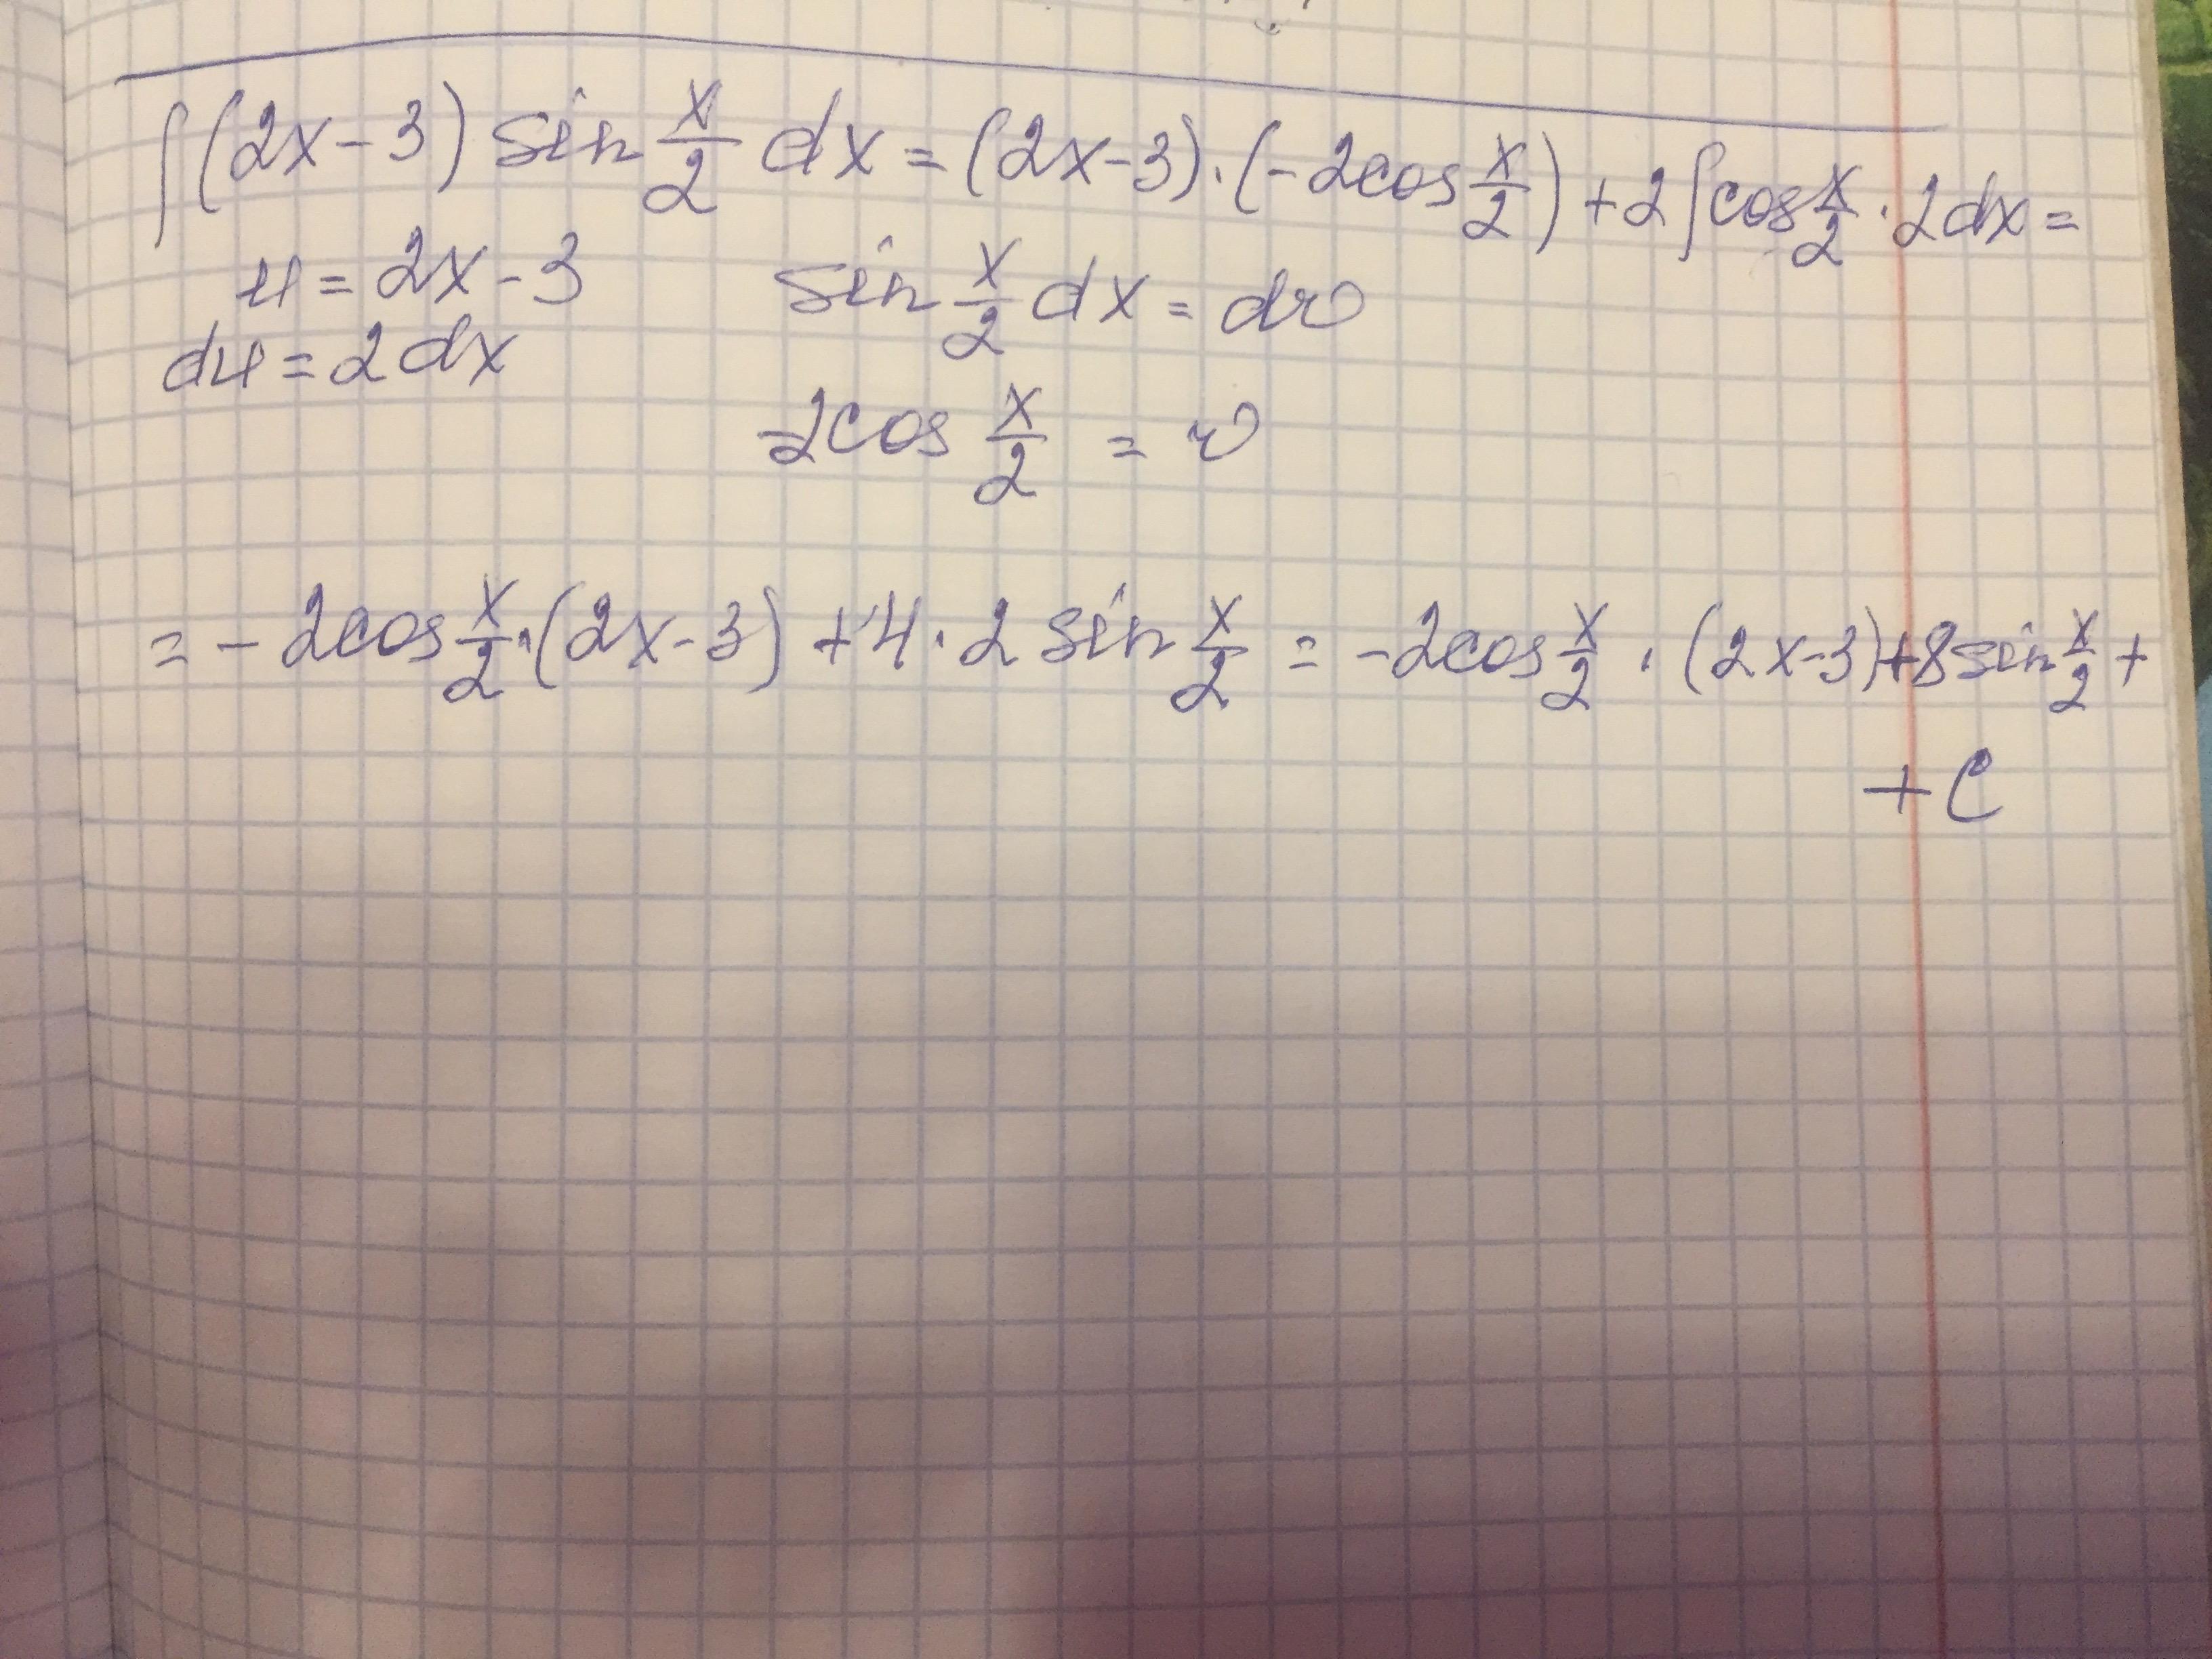 ∫(2x-3) sin x/2 dx = (2x-3)·(-2cos x/2) + 2∫cos x/2 · 2dx =
u = 2x-3 sin x/2 dx = dv
du = 2dx
-2cos x/2 = v
= -2cos x/2 · (2x-3) + 4·2 sin x/2 = -2cos x/2 · (2x-3) + 8 sin x/2 +
+ C